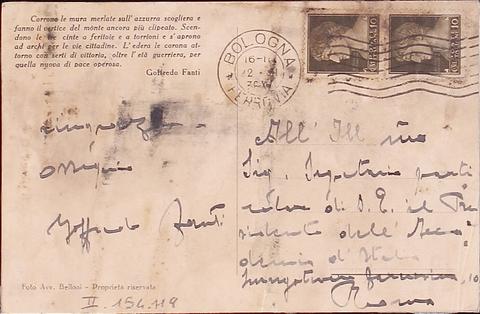 Corrono le mura merlate sull'azzurra scogliera e
fanno il vertice del monte ancora più clipeato. Scen-
dono le tre cinte a feritoie e a torrioni e s'aprono
ad archi per le vie cittadine. L'edera le corona at-
torno con serti di vittoria, oltre l'età guerriera, per
quella nuova di pace operosa.
Goffredo Fanti
BOLOGNA
FERROVIA
ossequio
Goffredo Fanti
All' Ill mo
Sig. Segretario parti
colare di S. E. il Pre
sidente dell' Acca
demia d'Italia
Lungotevere Farnesina, 10
Roma
Foto Avv. Belloni - Proprietà riservata
II. 154.119